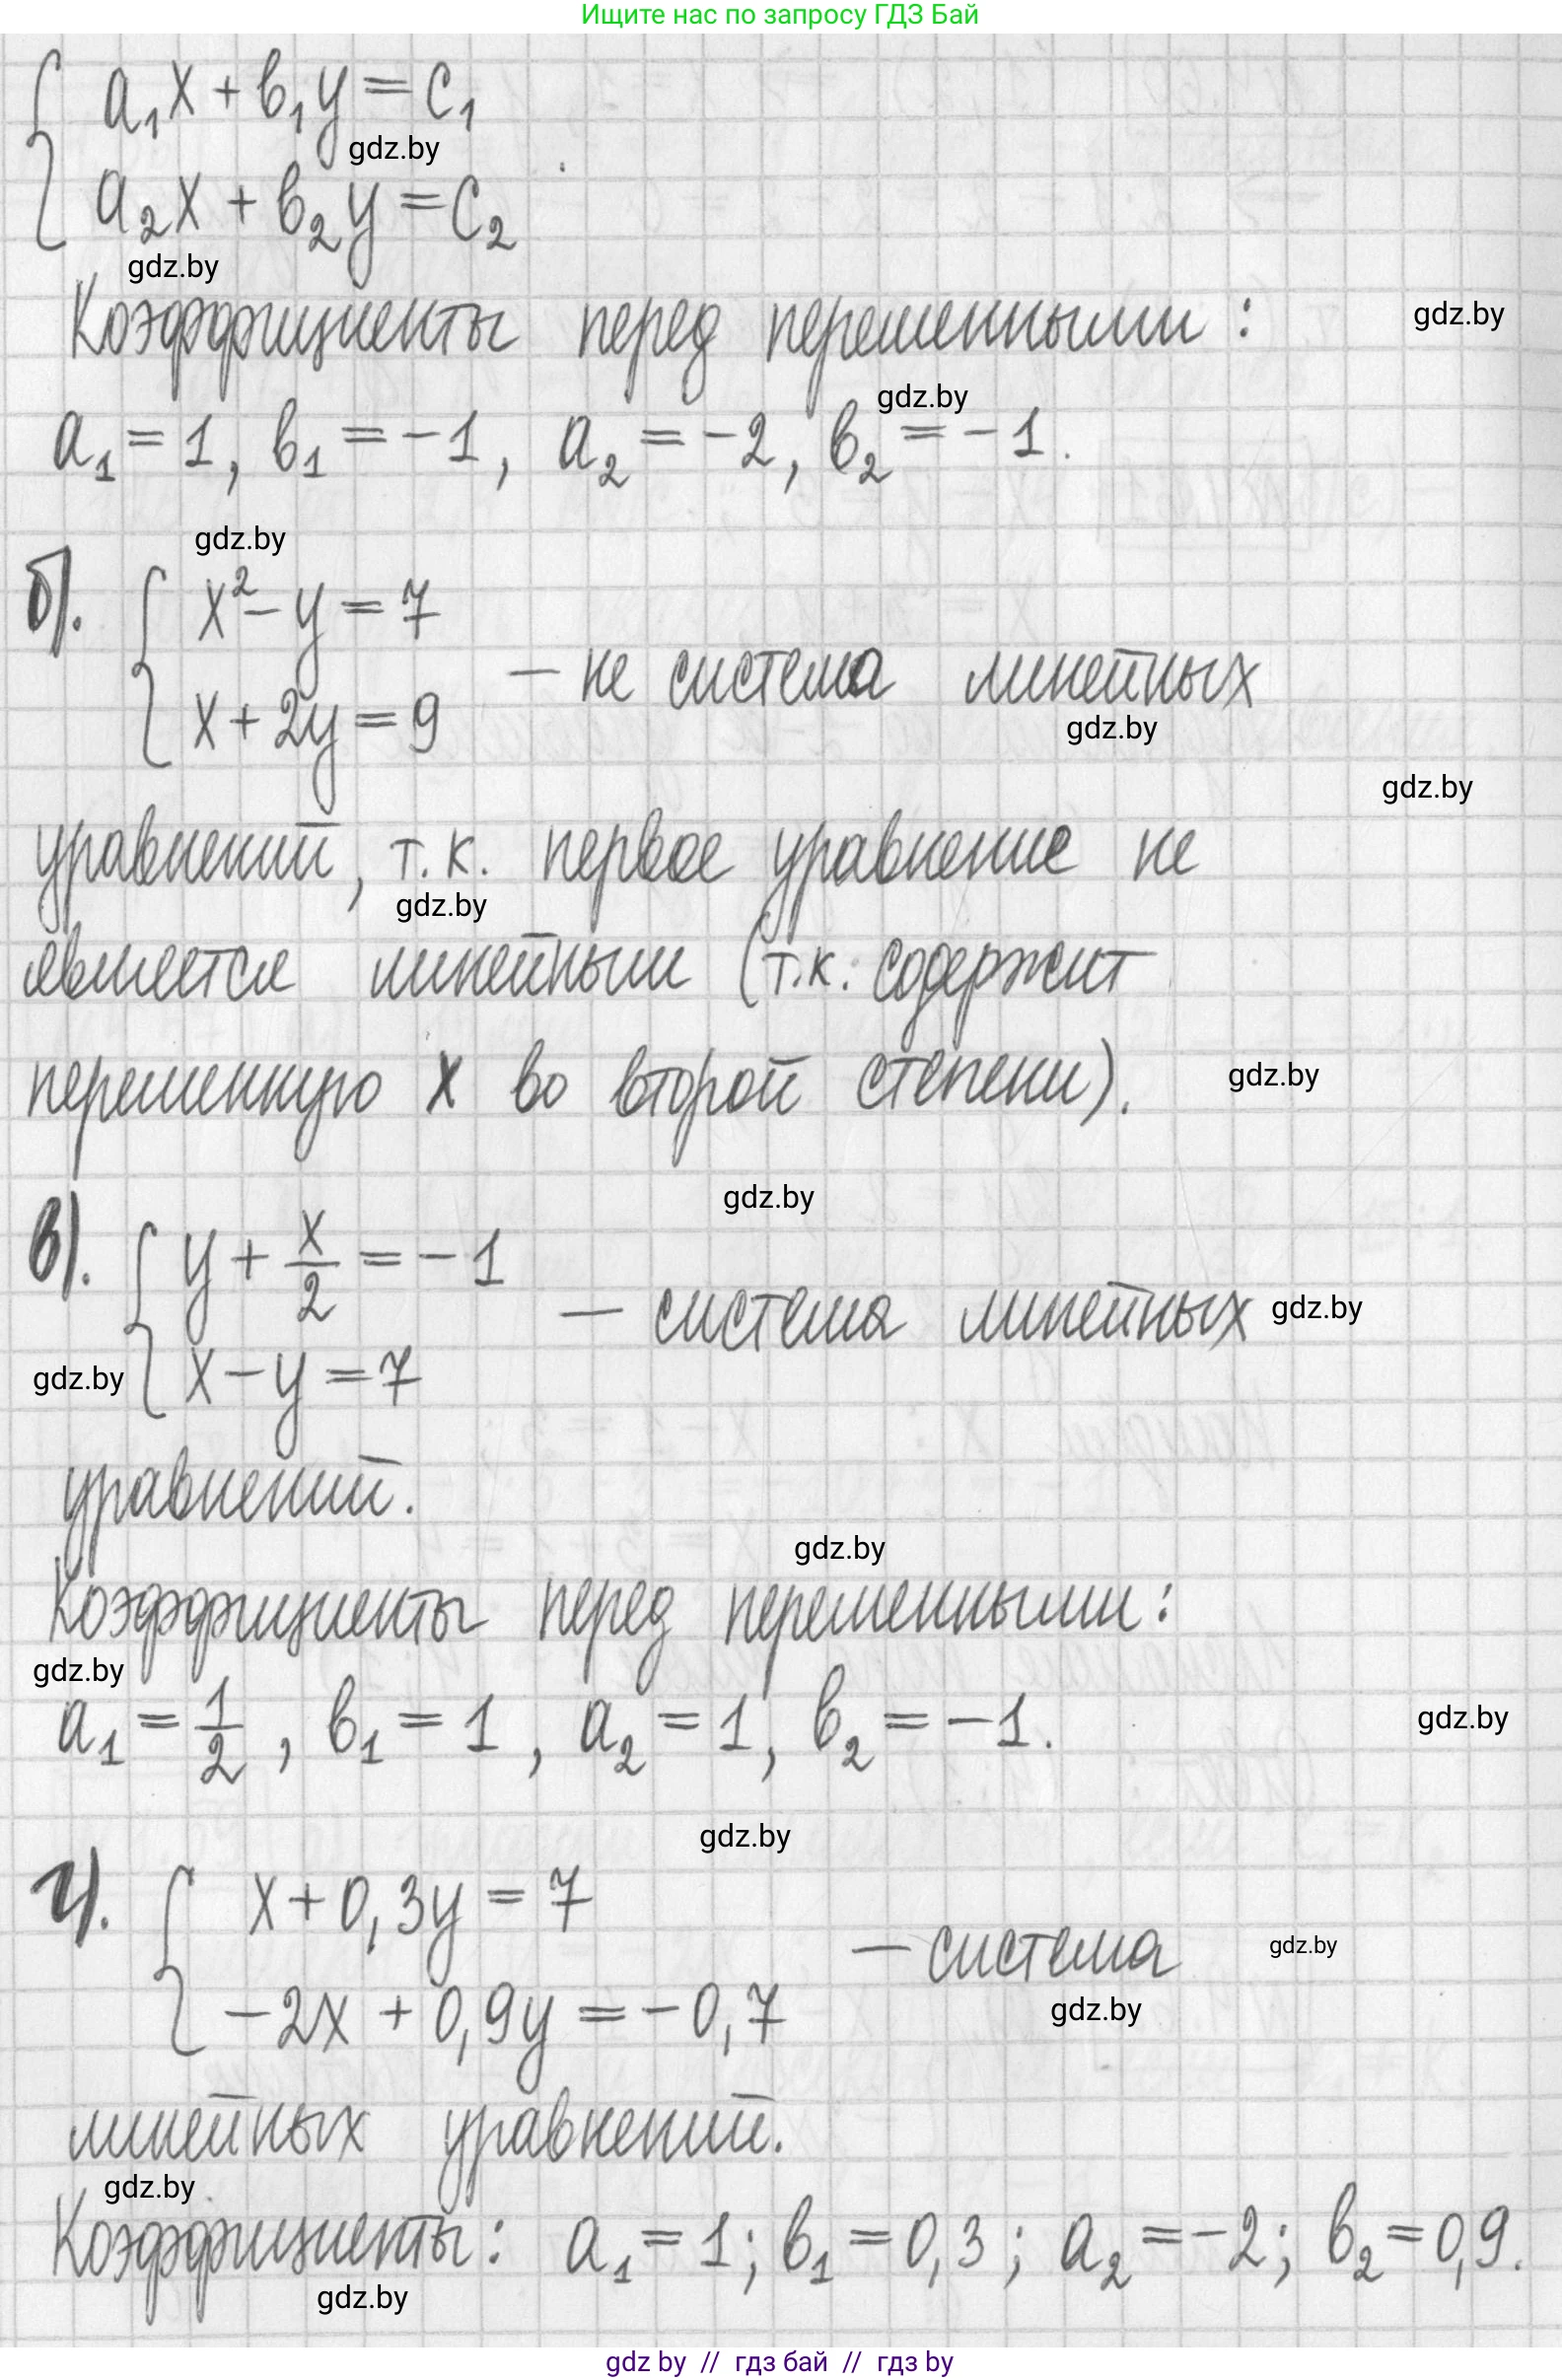 Ищите нас по запросу ГДЗ Бай
a₁x + b₁y = c₁
gdz.by
a₂x + b₂y = c₂
gdz.by
Коэффициенты перед переменными :
gdz.by
gdz.by
a₁ = 1, b₁ = -1, a₂ = -2, b₂ = -1.
gdz.by
б). x² - y = 7
— не система линейных
x + 2y = 9
gdz.by
gdz.by
уравнений, т.к. первое уравнение не
gdz.by
является линейным (т.к. содержит
переменную x во второй степени).
gdz.by
gdz.by
в). y + x/2 = -1
— система линейных
gdz.by
gdz.by
x - y = 7
уравнений.
gdz.by
Коэффициенты перед переменными:
gdz.by
a₁ = 1/2, b₁ = 1, a₂ = 1, b₂ = -1.
gdz.by
gdz.by
г). x + 0,3y = 7
— система
gdz.by
gdz.by
-2x + 0,9y = -0,7
линейных уравнений.
gdz.by
Коэффициенты: a₁ = 1; b₁ = 0,3; a₂ = -2; b₂ = 0,9.
gdz.by
gdz by // гдз бай // гдз by